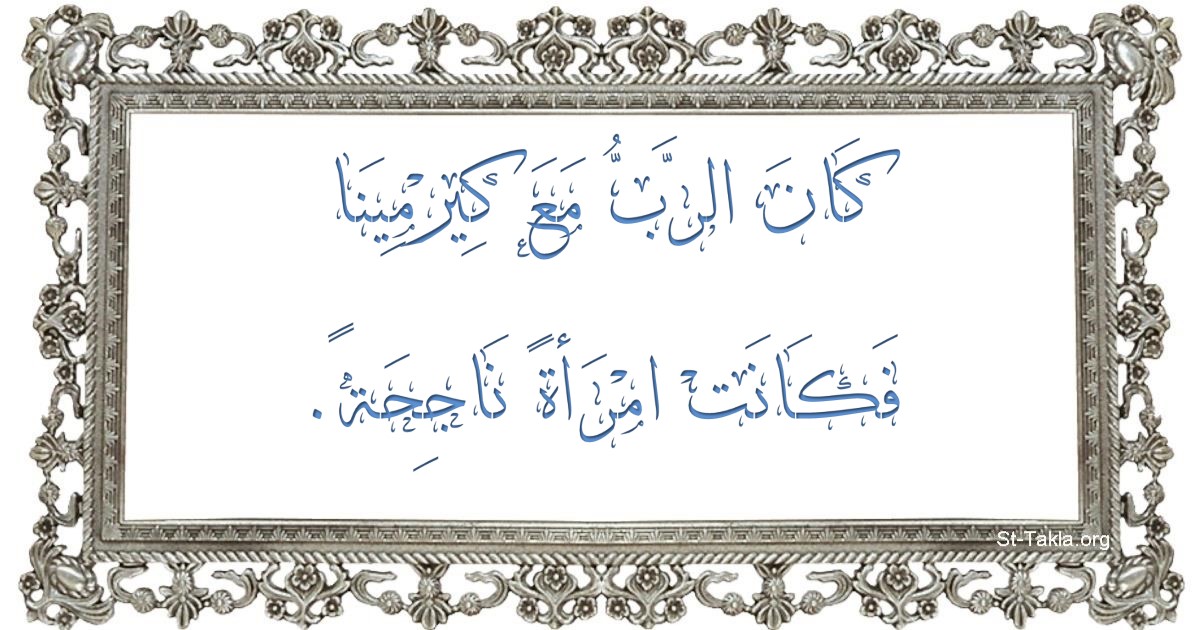 كَانَ الرَّبُّ مَعَ كِيرْمِينَا
فَكَانَت امْرَأَةً نَاجِحَةً.
St-Takla.org